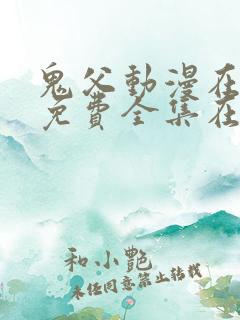 鬼父動漫在
免費全集在
和小艷
未经同意禁止转载